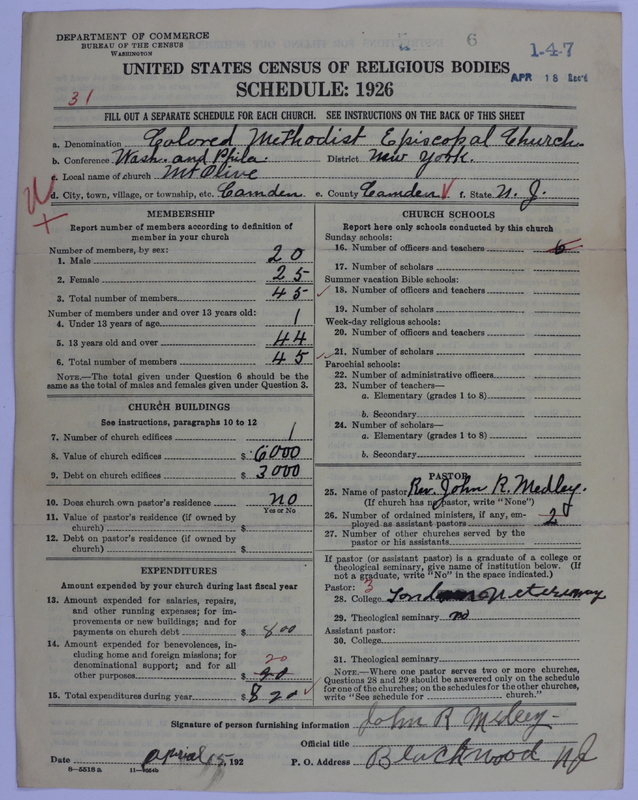 DEPARTMENT OF COMMERCE
BUREAU OF THE CENSUS
WASHINGTON
6
1-4-7
UNITED STATES CENSUS OF RELIGIOUS BODIES
APR 18 Rec'd
SCHEDULE: 1926
31
FILL OUT A SEPARATE SCHEDULE FOR EACH CHURCH. SEE INSTRUCTIONS ON THE BACK OF THIS SHEET
a. Denomination Colored Methodist Episcopal Church.
b. Conference Wash. and Phila. District New York.
c. Local name of church Mt Olive
d. City, town, village, or township, etc. Camden. e. County Camden f. State N. J.
MEMBERSHIP
Report number of members according to definition of
member in your church
Number of members, by sex:
1. Male 20
2. Female 25
3. Total number of members 45
Number of members under and over 13 years old:
4. Under 13 years of age 1
5. 13 years old and over 44
6. Total number of members 45
NOTE.—The total given under Question 6 should be
same as the total of males and females given under Question 3.
CHURCH BUILDINGS
See instructions, paragraphs 10 to 12
7. Number of church edifices 1
8. Value of church edifices $ 6000
9. Debt on church edifices $ 3000
10. Does church own pastor's residence no
Yes or No
11. Value of pastor's residence (if owned by
church) $
12. Debt on pastor's residence (if owned by
church) $
EXPENDITURES
Amount expended by your church during last fiscal year
13. Amount expended for salaries, repairs,
and other running expenses; for im-
provements or new buildings; and for
payments on church debt $ 800
14. Amount expended for benevolences, in-
cluding home and foreign missions; for
denominational support; and for all
20
other purposes $ 20
15. Total expenditures during year $ 820
CHURCH SCHOOLS
Report here only schools conducted by this church
Sunday schools:
16. Number of officers and teachers 6
17. Number of scholars
Summer vacation Bible schools:
18. Number of officers and teachers
19. Number of scholars
Week-day religious schools:
20. Number of officers and teachers
21. Number of scholars
Parochial schools:
22. Number of administrative officers
23. Number of teachers—
a. Elementary (grades 1 to 8)
b. Secondary
24. Number of scholars—
a. Elementary (grades 1 to 8)
b. Secondary
PASTOR
25. Name of pastor Rev. John R. Medley.
(If church has no pastor, write "None")
26. Number of ordained ministers, if any, em-
ployed as assistant pastors 2
27. Number of other churches served by the
pastor or his assistants
If pastor (or assistant pastor) is a graduate of a college or
theological seminary, give name of institution below. (If
not a graduate, write "No" in the space indicated.)
Pastor: 3
28. College
29. Theological seminary no
Assistant pastor:
30. College
31. Theological seminary
NOTE.—Where one pastor serves two or more churches,
Questions 28 and 29 should be answered only on the schedule
for one of the churches; on the schedules for the other churches,
write "See schedule for church."
Signature of person furnishing information John R Medley
Official title
Date april 15, 192 P. O. Address Blackwood NJ
8—5518 a